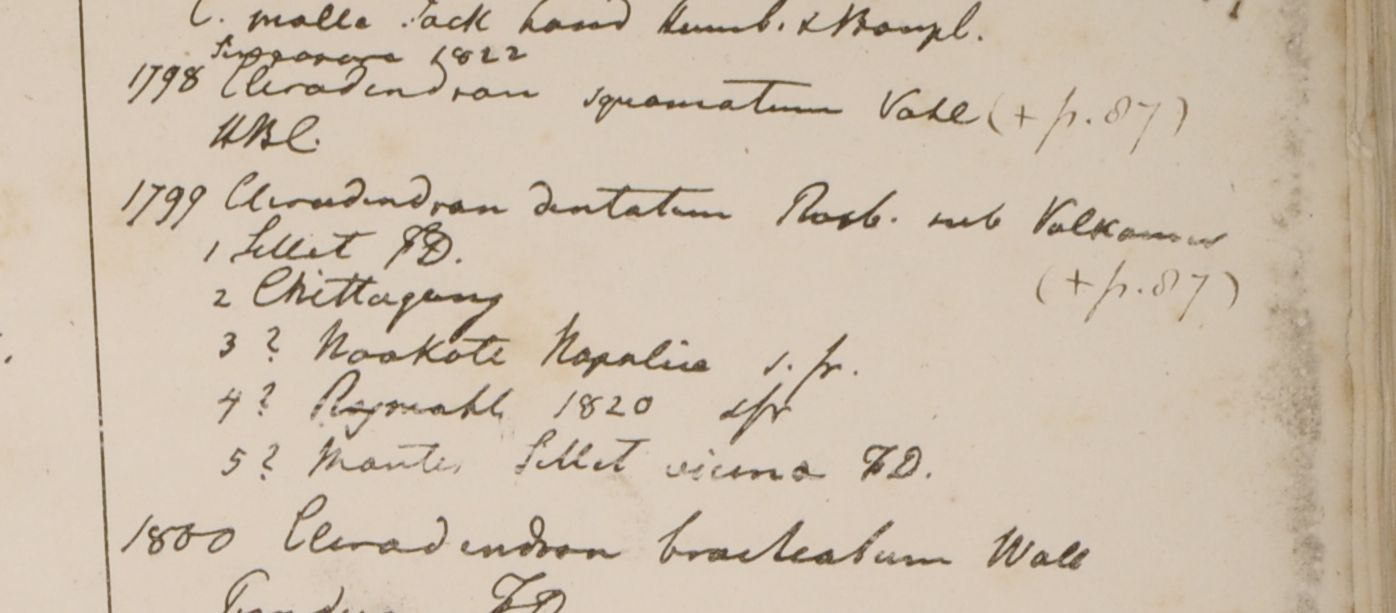 C. molle Jack haud Humb. & Bonpl.
Singapore 1822
1798 Clerodendron squamatum Vahl (+ p. 87)
HBC.
1799 Clerodendron dentatum Roxb. sub Volkameria
1 Sillet FD.
(+ p. 87)
2 Chittagong
3 ? Noakote Napalia s. fr.
4 ? Rajmahl 1820 sfr
5 ? Montes Sillet vicina FD.
1800 Clerodendron bracteatum Wall
FD